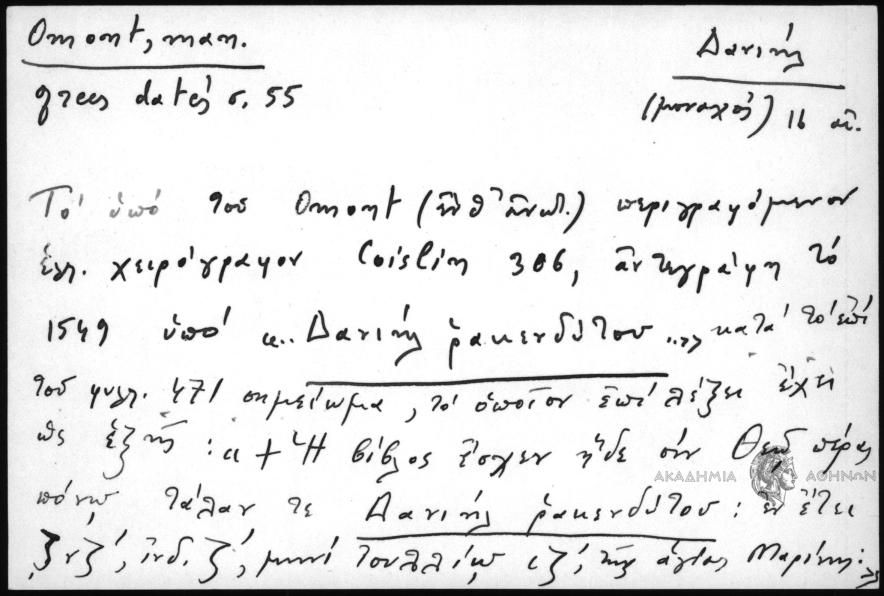 Omont, man.
grecs datés σ. 55
Δανιήλ
(μοναχός) 16 αἰ.
Τό ὑπό τοῦ Omont (ἔνθ' ἀνωτ.) περιγραφόμενον
ἑλλ. χειρόγραφον Coislin 306, ἀντεγράφη τό
1549 ὑπό "..Δανιήλ ῥακενδύτου..", κατά τό ἐπί
τοῦ φυλλ. 471 σημείωμα, τό ὁποῖον ἐπί λέξει ἔχει
ὡς ἑξῆς: "+ Ἡ βίβλος ἔσχεν ἥδε σύν Θεῷ πέρας
ΑΚΑΔΗΜΙΑ ΑΘΗΝΩΝ
πόνῳ τάλαν τε Δανιήλ ῥακενδύτου: ἐν ἔτει
ζνζ', ἰνδ. ζ', μηνί Ἰουλλίῳ ιζ', τῆς ἁγίας Μαρίνης: